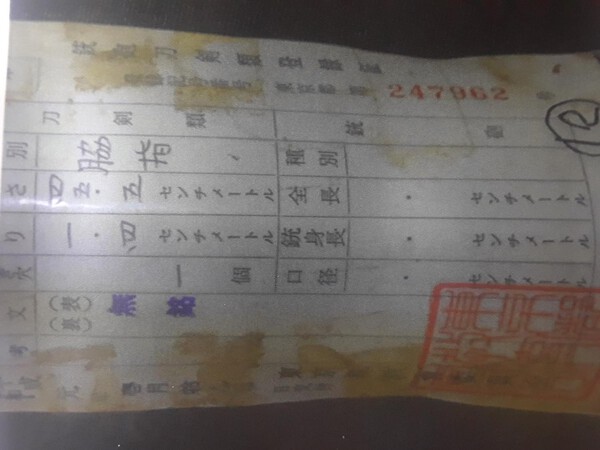 銃砲刀剣類登録証
登録記号番号 東京都 第 247962 号
刀剣類 銃砲
別 脇指 種別
さ 四五.五 センチメートル 全長 . センチメートル
り 一.四 センチメートル 銃身長 . センチメートル
穴 一 個 口径 . センチメートル
文 (表) (裏) 無銘
考
元 月